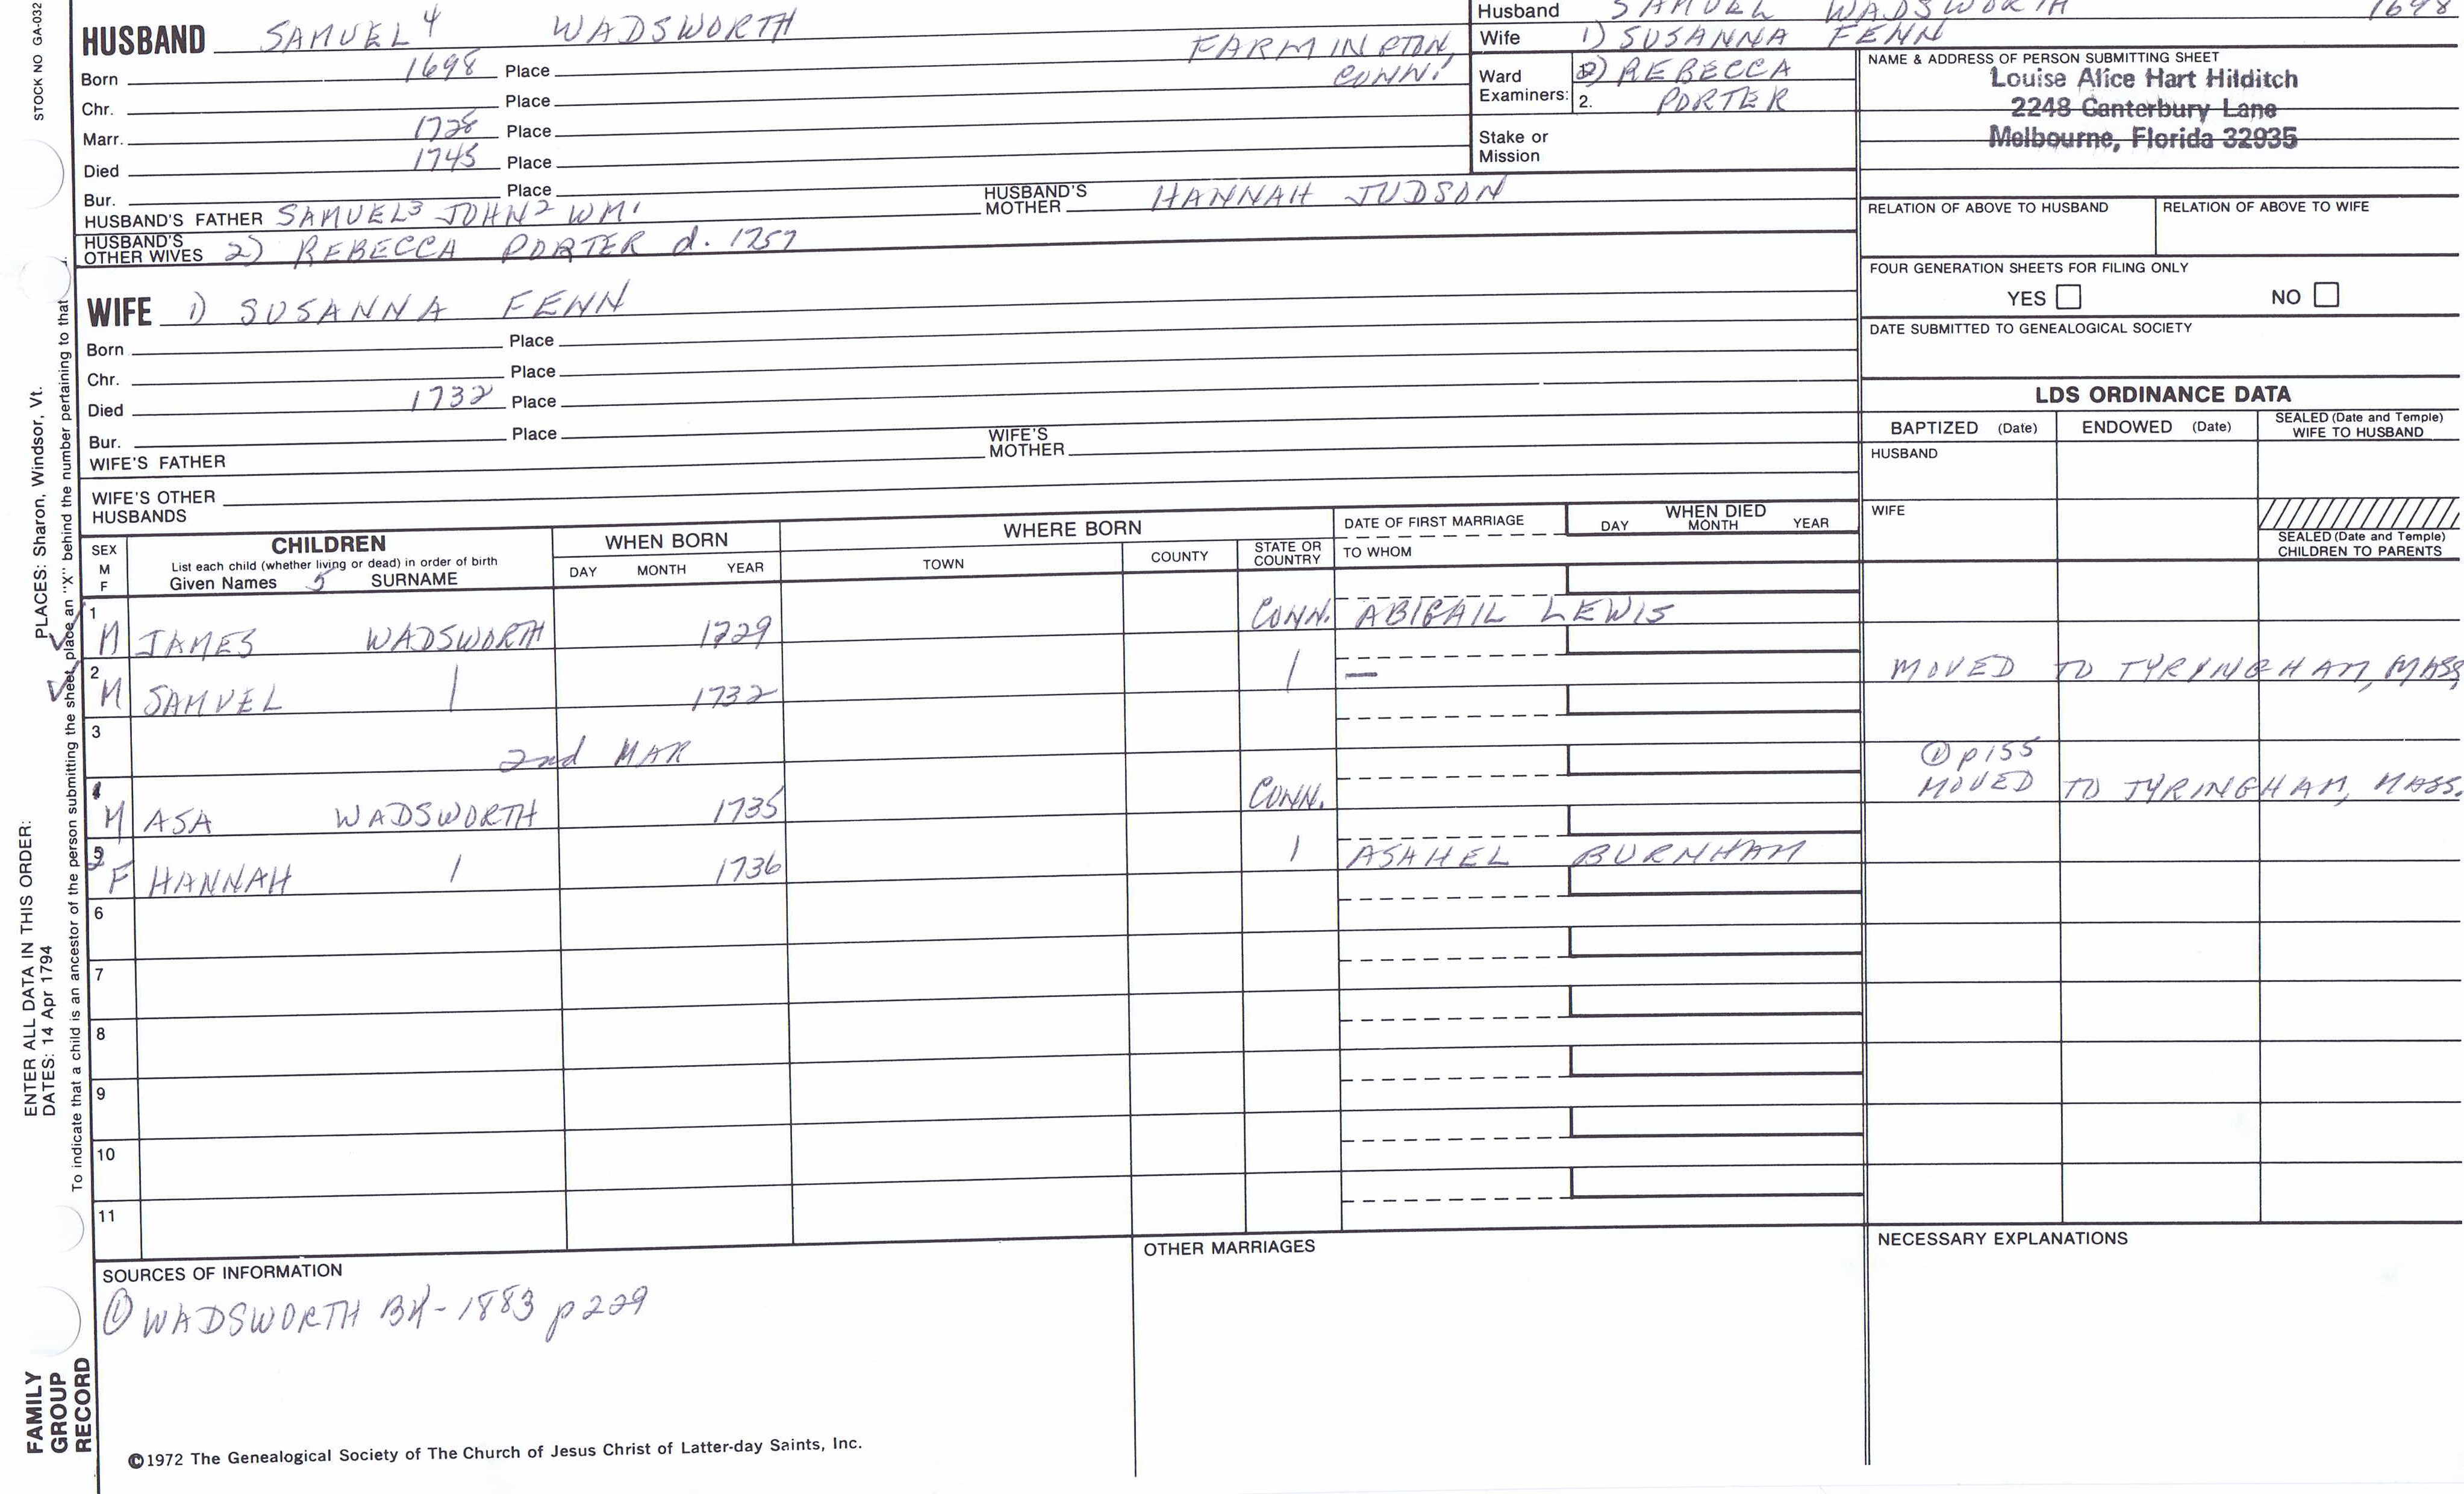 STOCK NO GA-032
HUSBAND SAMUEL⁴ WADSWORTH
Born 1698 Place FARMINGTON, CONN.
Chr. Place
Marr. 1728 Place
Died 1745 Place
Bur. Place
HUSBAND'S FATHER SAMUEL³ JOHN² WM¹ HUSBAND'S MOTHER HANNAH JUDSON
HUSBAND'S OTHER WIVES 2) REBECCA PORTER d. 1757
WIFE 1) SUSANNA FENN
Born Place
Chr. Place
Died 1732 Place
Bur. Place
WIFE'S FATHER WIFE'S MOTHER
WIFE'S OTHER HUSBANDS
Husband SAMUEL WADSWORTH 1698
Wife 1) SUSANNA FENN
Ward Examiners: 2) REBECCA
2. PORTER
Stake or Mission
NAME & ADDRESS OF PERSON SUBMITTING SHEET
Louise Alice Hart Hilditch
2248 Canterbury Lane
Melbourne, Florida 32935
RELATION OF ABOVE TO HUSBAND RELATION OF ABOVE TO WIFE
FOUR GENERATION SHEETS FOR FILING ONLY
YES NO
DATE SUBMITTED TO GENEALOGICAL SOCIETY
LDS ORDINANCE DATA
BAPTIZED (Date) ENDOWED (Date) SEALED (Date and Temple) WIFE TO HUSBAND
HUSBAND
WIFE
SEALED (Date and Temple) CHILDREN TO PARENTS
SEX M F
CHILDREN
List each child (whether living or dead) in order of birth
Given Names 5 SURNAME
WHEN BORN
DAY MONTH YEAR
WHERE BORN
TOWN COUNTY STATE OR COUNTRY
DATE OF FIRST MARRIAGE
TO WHOM
WHEN DIED
DAY MONTH YEAR
1 M JAMES WADSWORTH 1729 CONN. ABIGAIL LEWIS
2 M SAMUEL | 1732 | — MOVED TO TYRINGHAM, MASS
3 2nd MAR
① p155
4 M ASA WADSWORTH 1735 CONN. MOVED TO TYRINGHAM, MASS.
5 F HANNAH | 1736 | ASAHEL BURNHAM
6
7
8
9
10
11
SOURCES OF INFORMATION
① WADSWORTH BK - 1883 p229
OTHER MARRIAGES
NECESSARY EXPLANATIONS
©1972 The Genealogical Society of The Church of Jesus Christ of Latter-day Saints, Inc.
PLACES: Sharon, Windsor, Vt.
ENTER ALL DATA IN THIS ORDER:
DATES: 14 Apr 1794
To indicate that a child is an ancestor of the person submitting the sheet, place an "X" behind the number pertaining to that
FAMILY
GROUP
RECORD